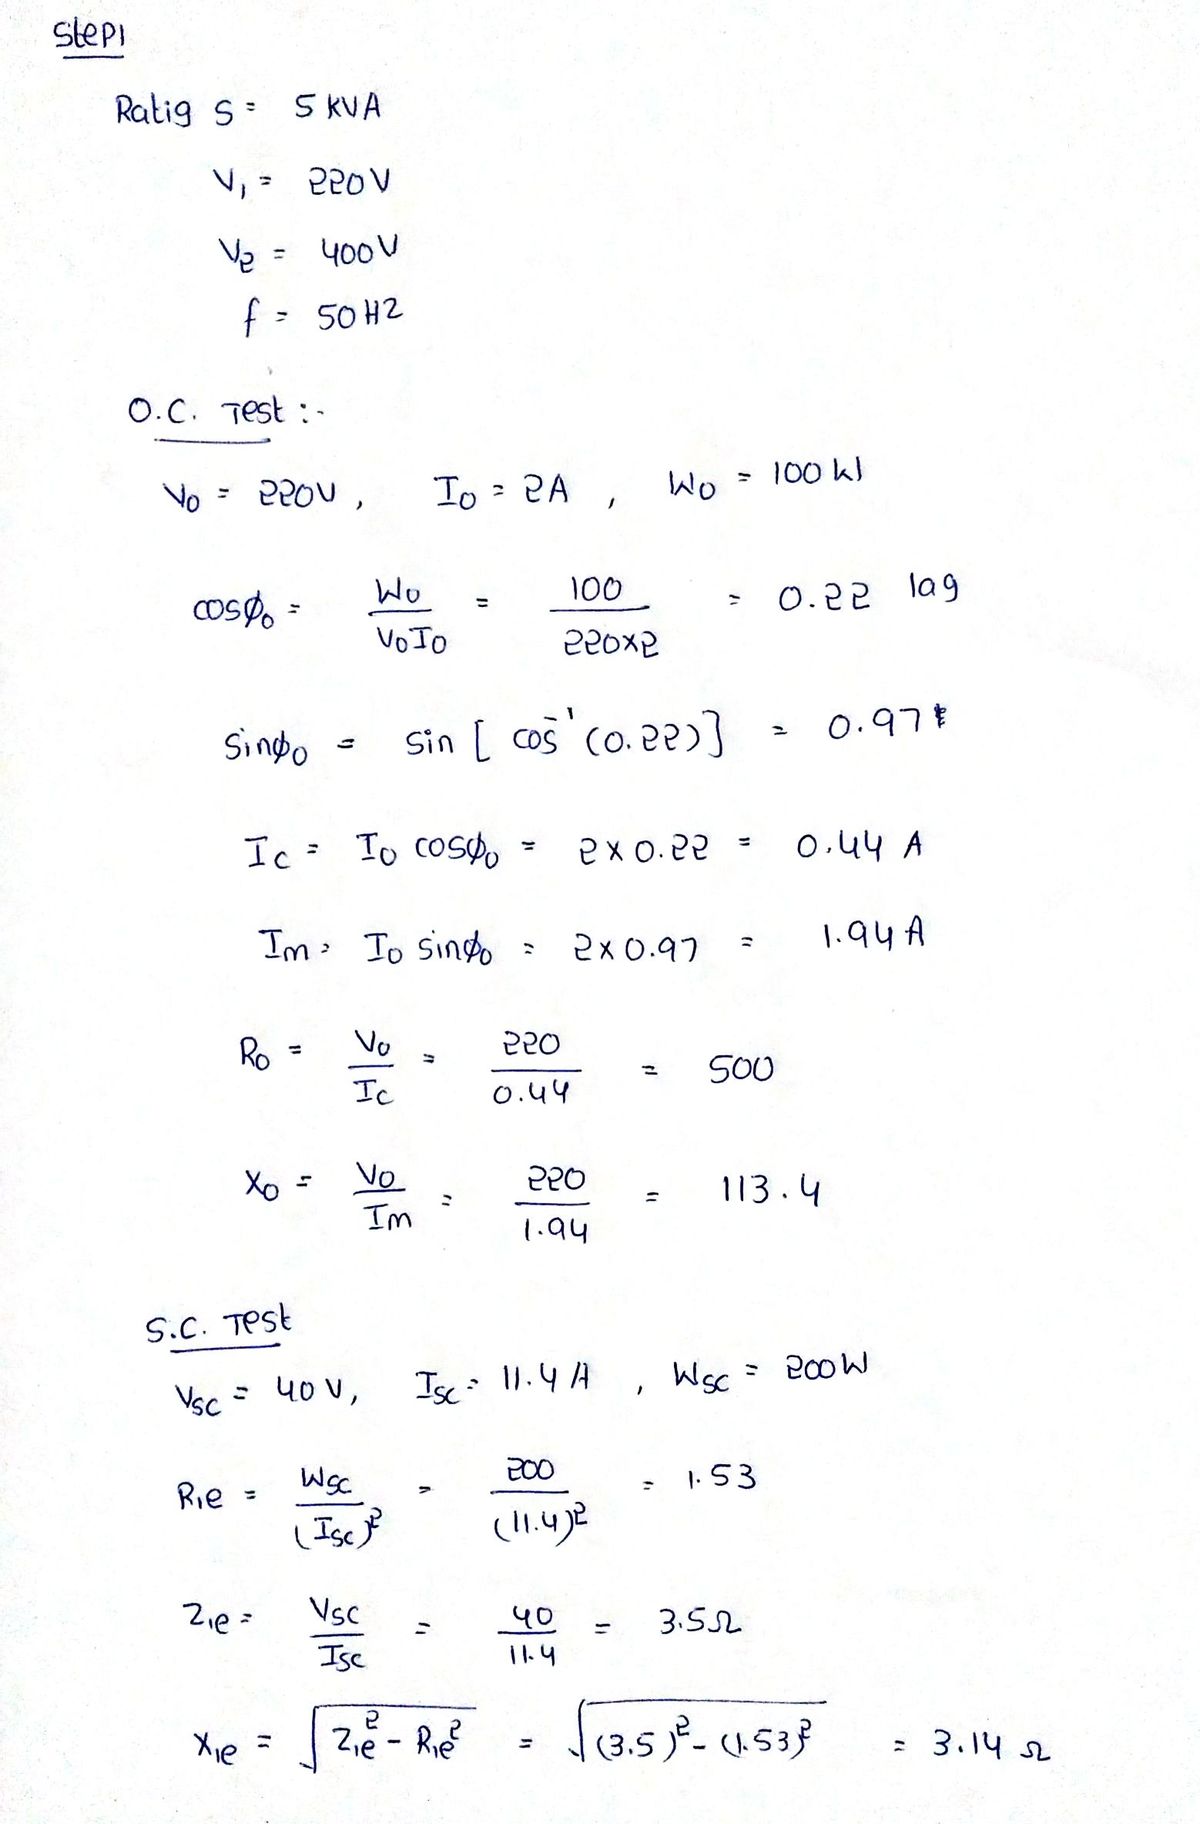 Step1
Ratig S = 5 KVA
V₁ = 220V
V₂ = 400V
f = 50HZ
O.C. Test :-
V₀ = 220V, I₀ = 2A , W₀ = 100 W
cosϕ₀ = W₀/V₀I₀ = 100/220×2 = 0.22 lag
Sinϕ₀ = sin [ cos⁻¹ (0.22)] = 0.97
Ic = I₀ cosϕ₀ = 2 × 0.22 = 0.44 A
Im = I₀ sinϕ₀ = 2 × 0.97 = 1.94 A
R₀ = V₀/Ic = 220/0.44 = 500
X₀ = V₀/Im = 220/1.94 = 113.4
S.C. Test
Vsc = 40 V, Isc = 11.4 A , Wsc = 200W
R₁e = Wsc/(Isc)² = 200/(11.4)² = 1.53
Z₁e = Vsc/Isc = 40/11.4 = 3.5Ω
X₁e = √(Z₁e² - R₁e²) = √((3.5)² - (1.53)²) = 3.14 Ω